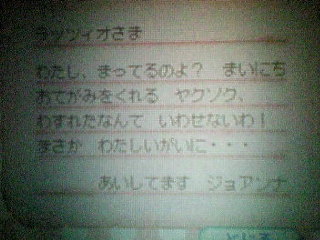 ラッツィオさま
わたし、まってるのよ？　まいにち
おてがみをくれる　ヤクソク、
わすれたなんて　いわせないわ！
まさか　わたしいがいに・・・
あいしてます　ジョアンナ
とじる